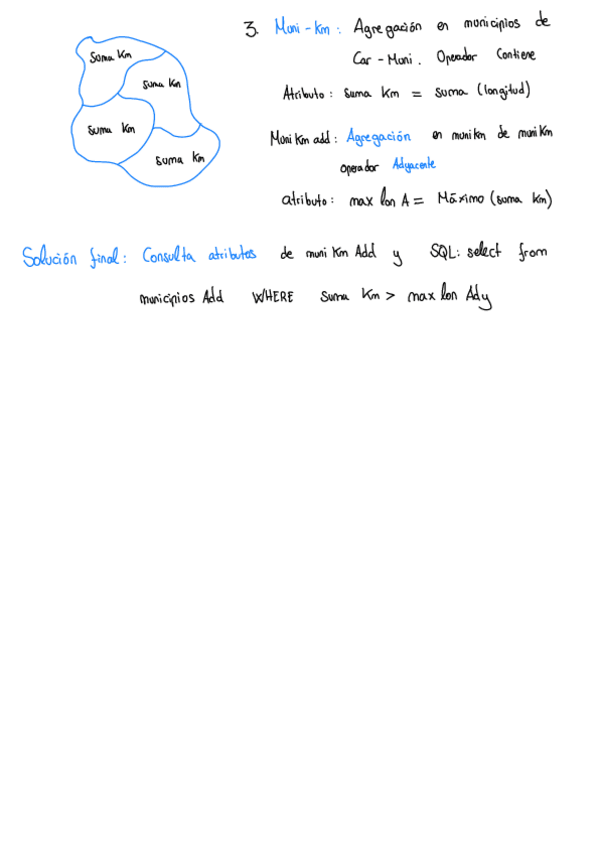 Suma Km
Suma Km
Suma Km
Suma Km
3. Muni-Km: Agregación en municipios de
Car-Muni. Operador Contiene
Atributo: suma Km = suma (longitud)
Muni Km add: Agregación en munikm de muniKm
operador Adyacente
atributo: max lon A = Máximo (suma Km)
Solución final: Consulta atributos de muni Km Add y SQL: select from
municipios Add WHERE suma Km > max lon Ady